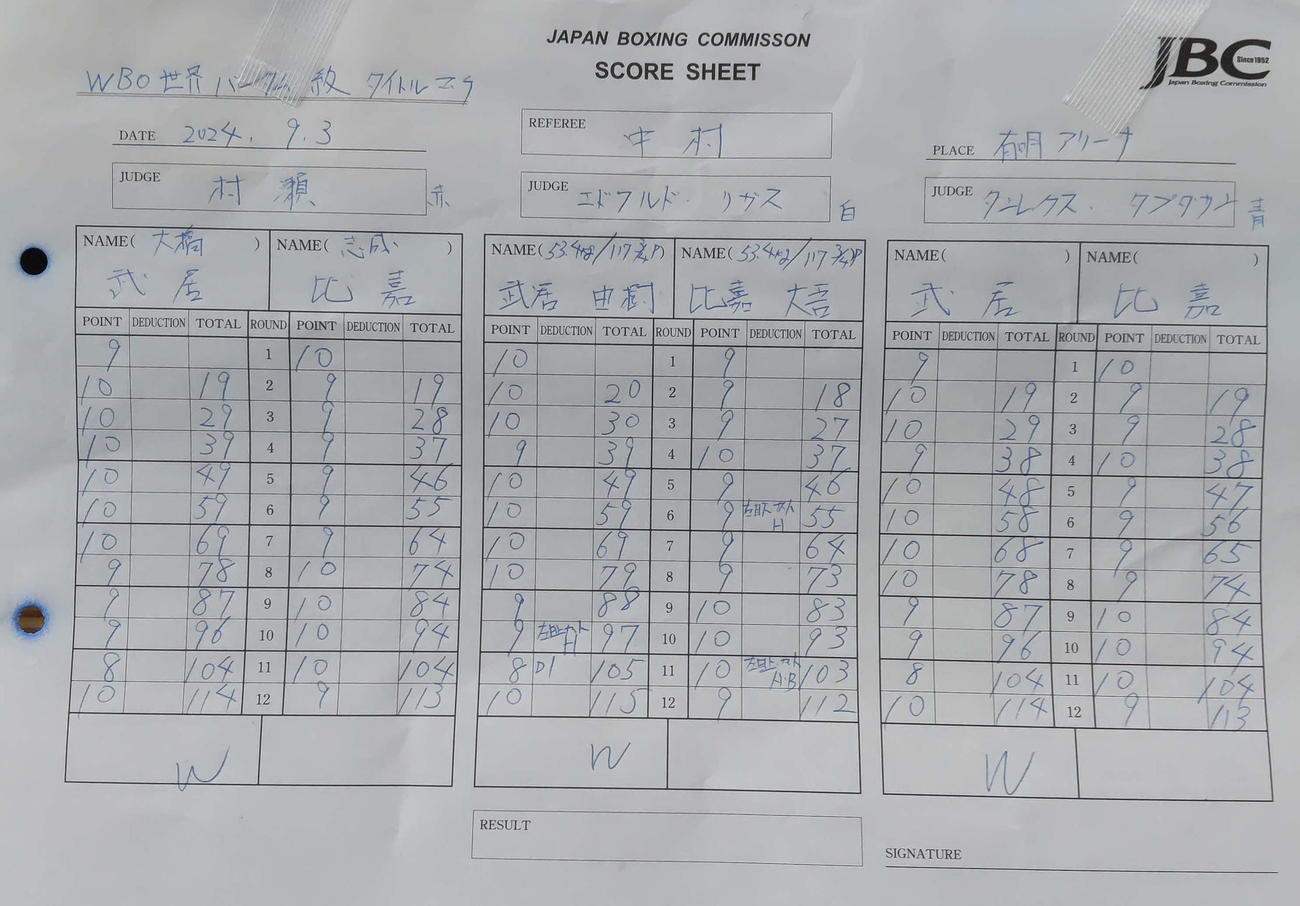 JAPAN BOXING COMMISSON
SCORE SHEET
JBC Since1952
Japan Boxing Commission
WBO 世界 バンタム 級 タイトルマッチ
DATE 2024. 9.3
REFEREE 中村
PLACE 有明アリーナ
JUDGE 村瀬 赤
JUDGE エドワルド・リガス 白
JUDGE ダンレックス・タプダサン 青
NAME( 大橋 ) NAME( 志成 ) NAME(53.4kg/117 3/4P) NAME(53.4kg/117 3/4P) NAME( ) NAME( )
武居 比嘉 武居 由樹 比嘉 大吾 武居 比嘉
POINT DEDUCTION TOTAL ROUND POINT DEDUCTION TOTAL POINT DEDUCTION TOTAL ROUND POINT DEDUCTION TOTAL POINT DEDUCTION TOTAL ROUND POINT DEDUCTION TOTAL
9 1 10 10 1 9 9 1 10
10 19 2 9 19 10 20 2 9 18 10 19 2 9 19
10 29 3 9 28 10 30 3 9 27 10 29 3 9 28
10 39 4 9 37 9 39 4 10 37 9 38 4 10 38
10 49 5 9 46 10 49 5 9 46 10 48 5 9 47
10 59 6 9 55 10 59 6 9 左目上カット H 55 10 58 6 9 56
10 69 7 9 64 10 69 7 9 64 10 68 7 9 65
9 78 8 10 74 10 79 8 9 73 10 78 8 9 74
9 87 9 10 84 9 88 9 10 83 9 87 9 10 84
9 96 10 10 94 9 左目上カット H 97 10 10 93 9 96 10 10 94
8 104 11 10 104 8 D1 105 11 10 左目上カット H・B 103 8 104 11 10 104
10 114 12 9 113 10 115 12 9 112 10 114 12 9 113
W W W
RESULT
SIGNATURE